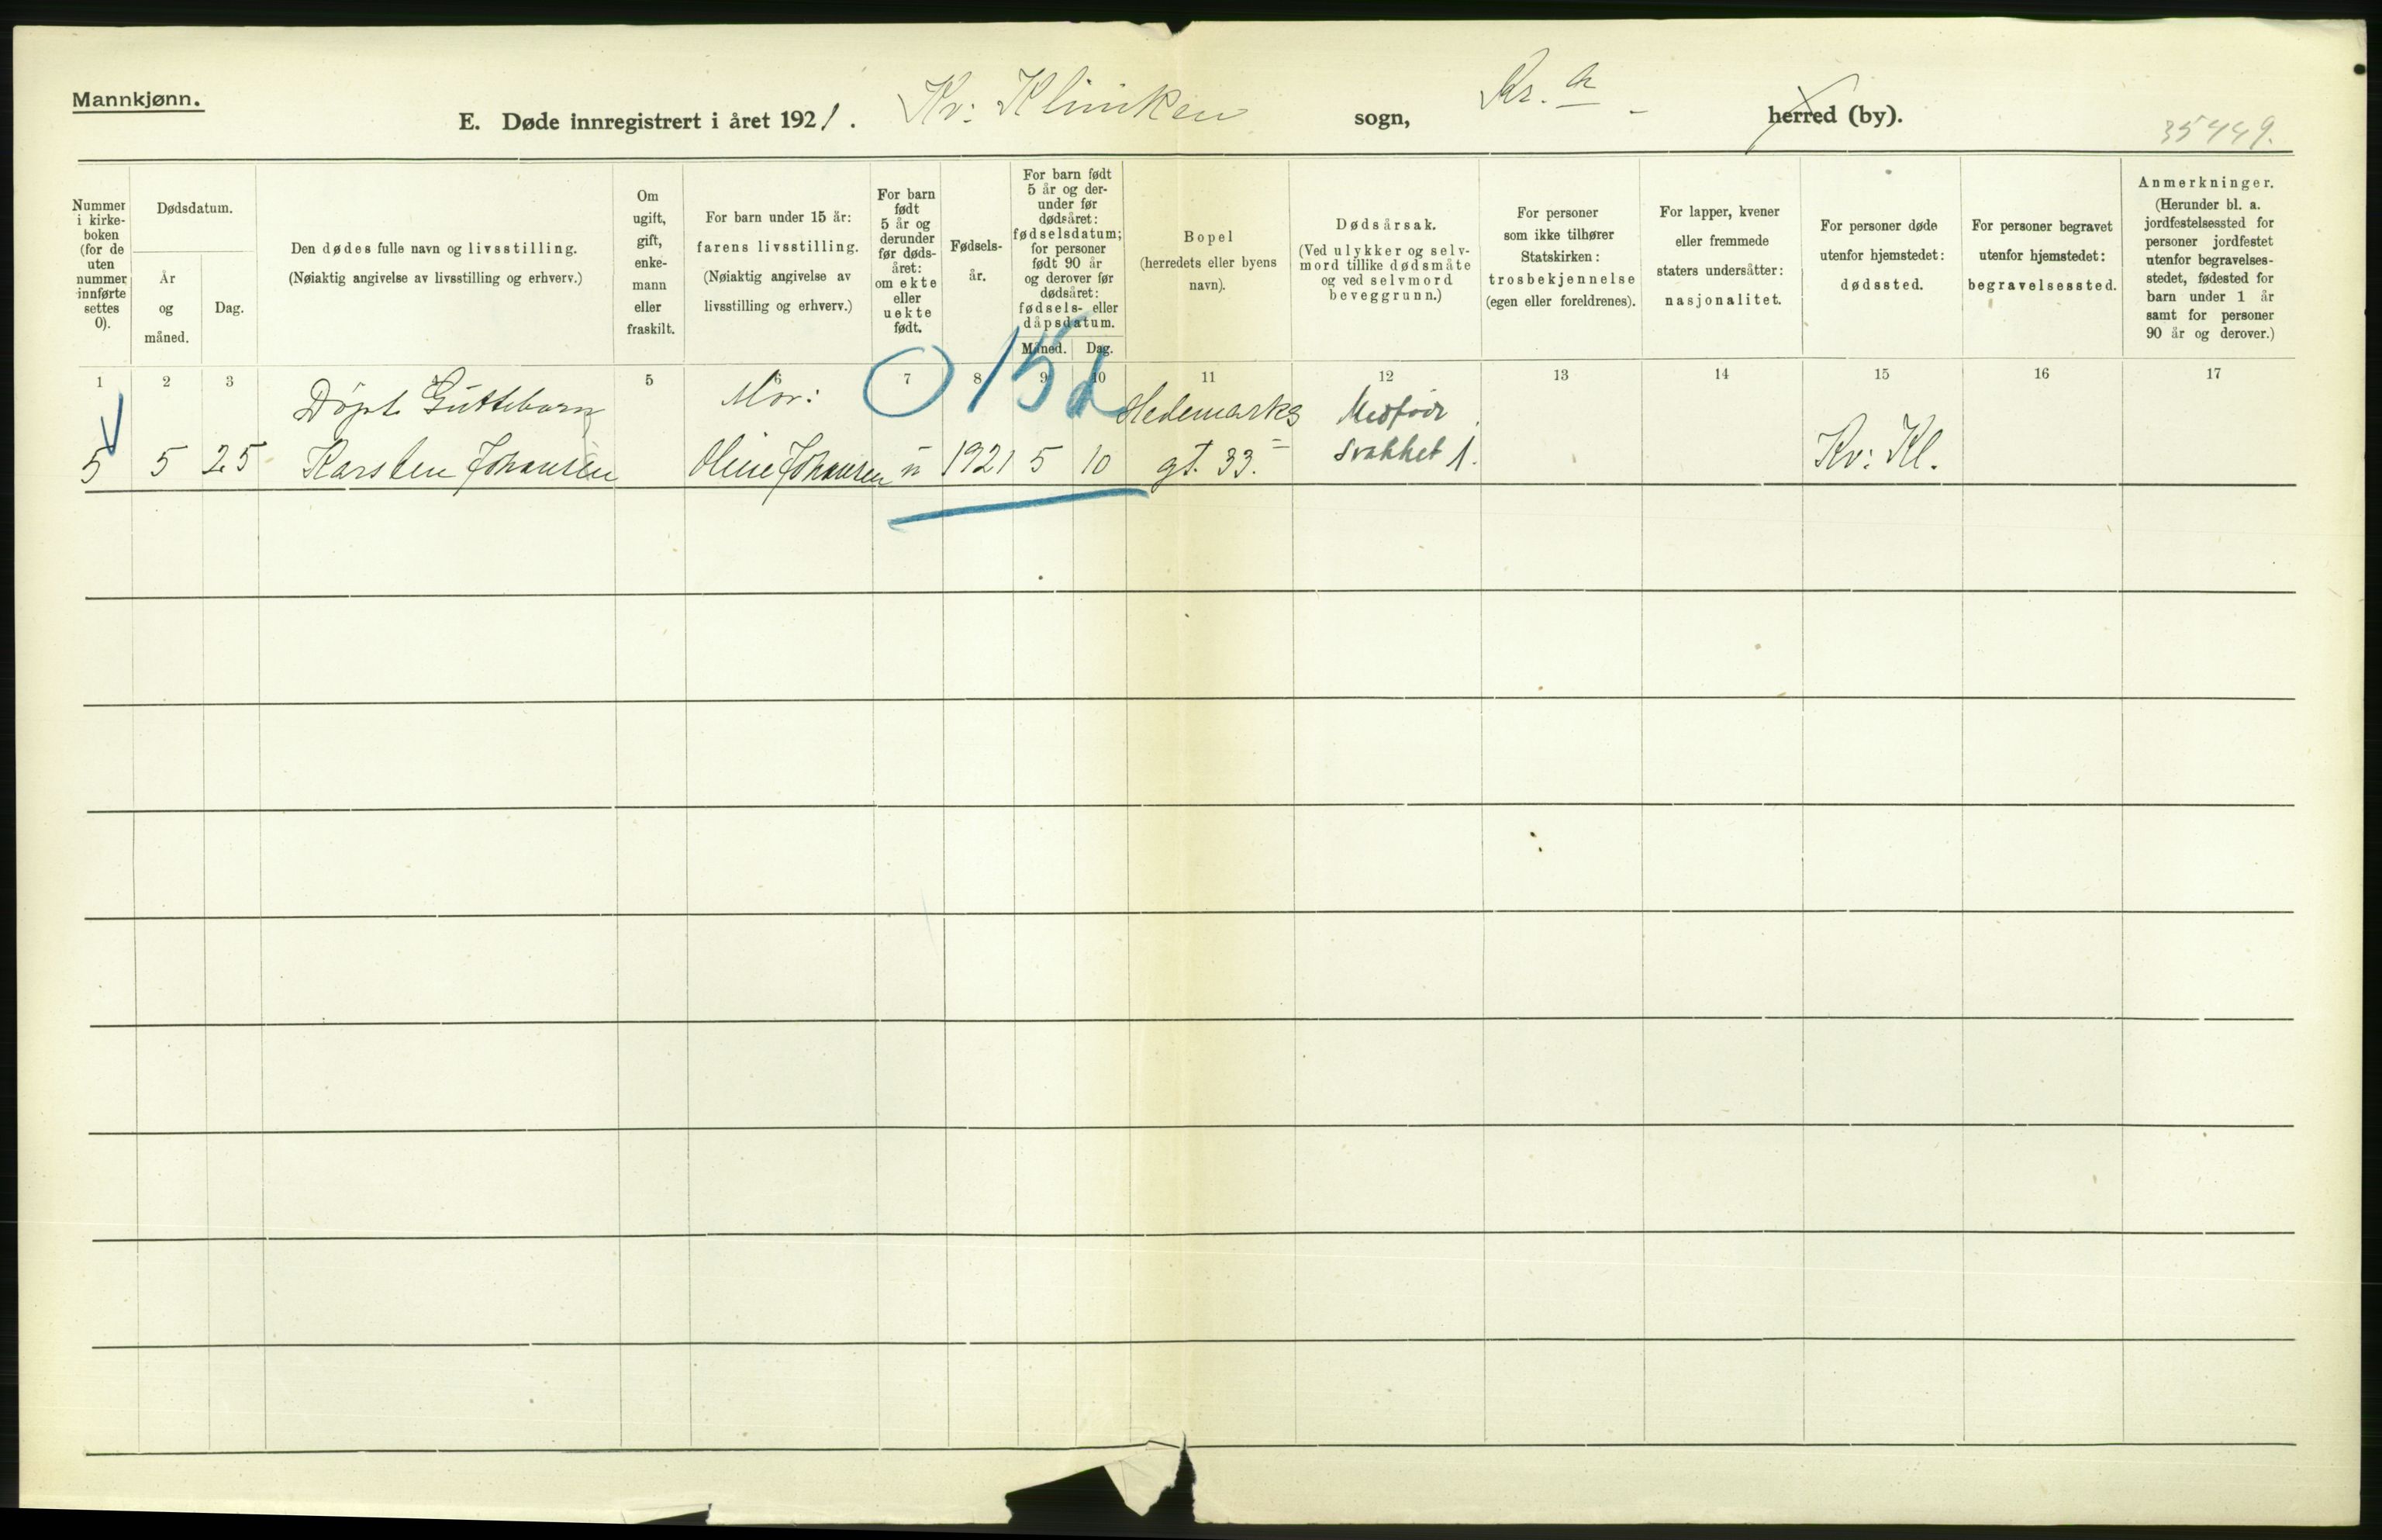 Mannkjønn.
E. Døde innregistrert i året 1921. Kv: Kliniken sogn, Kr. a - herred (by).
35449.
Nummer i kirke-boken (for de uten nummer innførte settes 0).
Dødsdatum.
År og måned.
Dag.
Den dødes fulle navn og livsstilling.
(Nøiaktig angivelse av livsstilling og erhverv.)
Om ugift, gift, enke-mann eller fraskilt.
For barn under 15 år:
farens livsstilling.
(Nøiaktig angivelse av
livsstilling og erhverv.)
For barn født 5 år og derunder før døds-året: om ekte eller uekte født.
Fødsels-år.
For barn født 5 år og der-under før dødsåret: fødselsdatum; for personer født 90 år og derover før dødsåret: fødsels- eller dåpsdatum.
Måned. Dag.
Bopel
(herredets eller byens
navn).
Dødsårsak.
(Ved ulykker og selv-
mord tillike dødsmåte
og ved selvmord
beveggrunn.)
For personer
som ikke tilhører
Statskirken:
trosbekjennelse
(egen eller foreldrenes).
For lapper, kvener
eller fremmede
staters undersåtter:
nasjonalitet.
For personer døde
utenfor hjemstedet:
dødssted.
For personer begravet
utenfor hjemstedet:
begravelsessted.
Anmerkninger.
(Herunder bl. a.
jordfestelsessted for
personer jordfestet
utenfor begravelses-
stedet, fødested for
barn under 1 år
samt for personer
90 år og derover.)
1 2 3 4 5 6 7 8 9 10 11 12 13 14 15 16 17
0 15 d
Døpt Guttebarn Mor: Hedemarks Medfødt
5 5 25 Karsten Johansen Oline Johansen u 1921 5 10 gt. 33. svakhet 1. Kv: Kl.